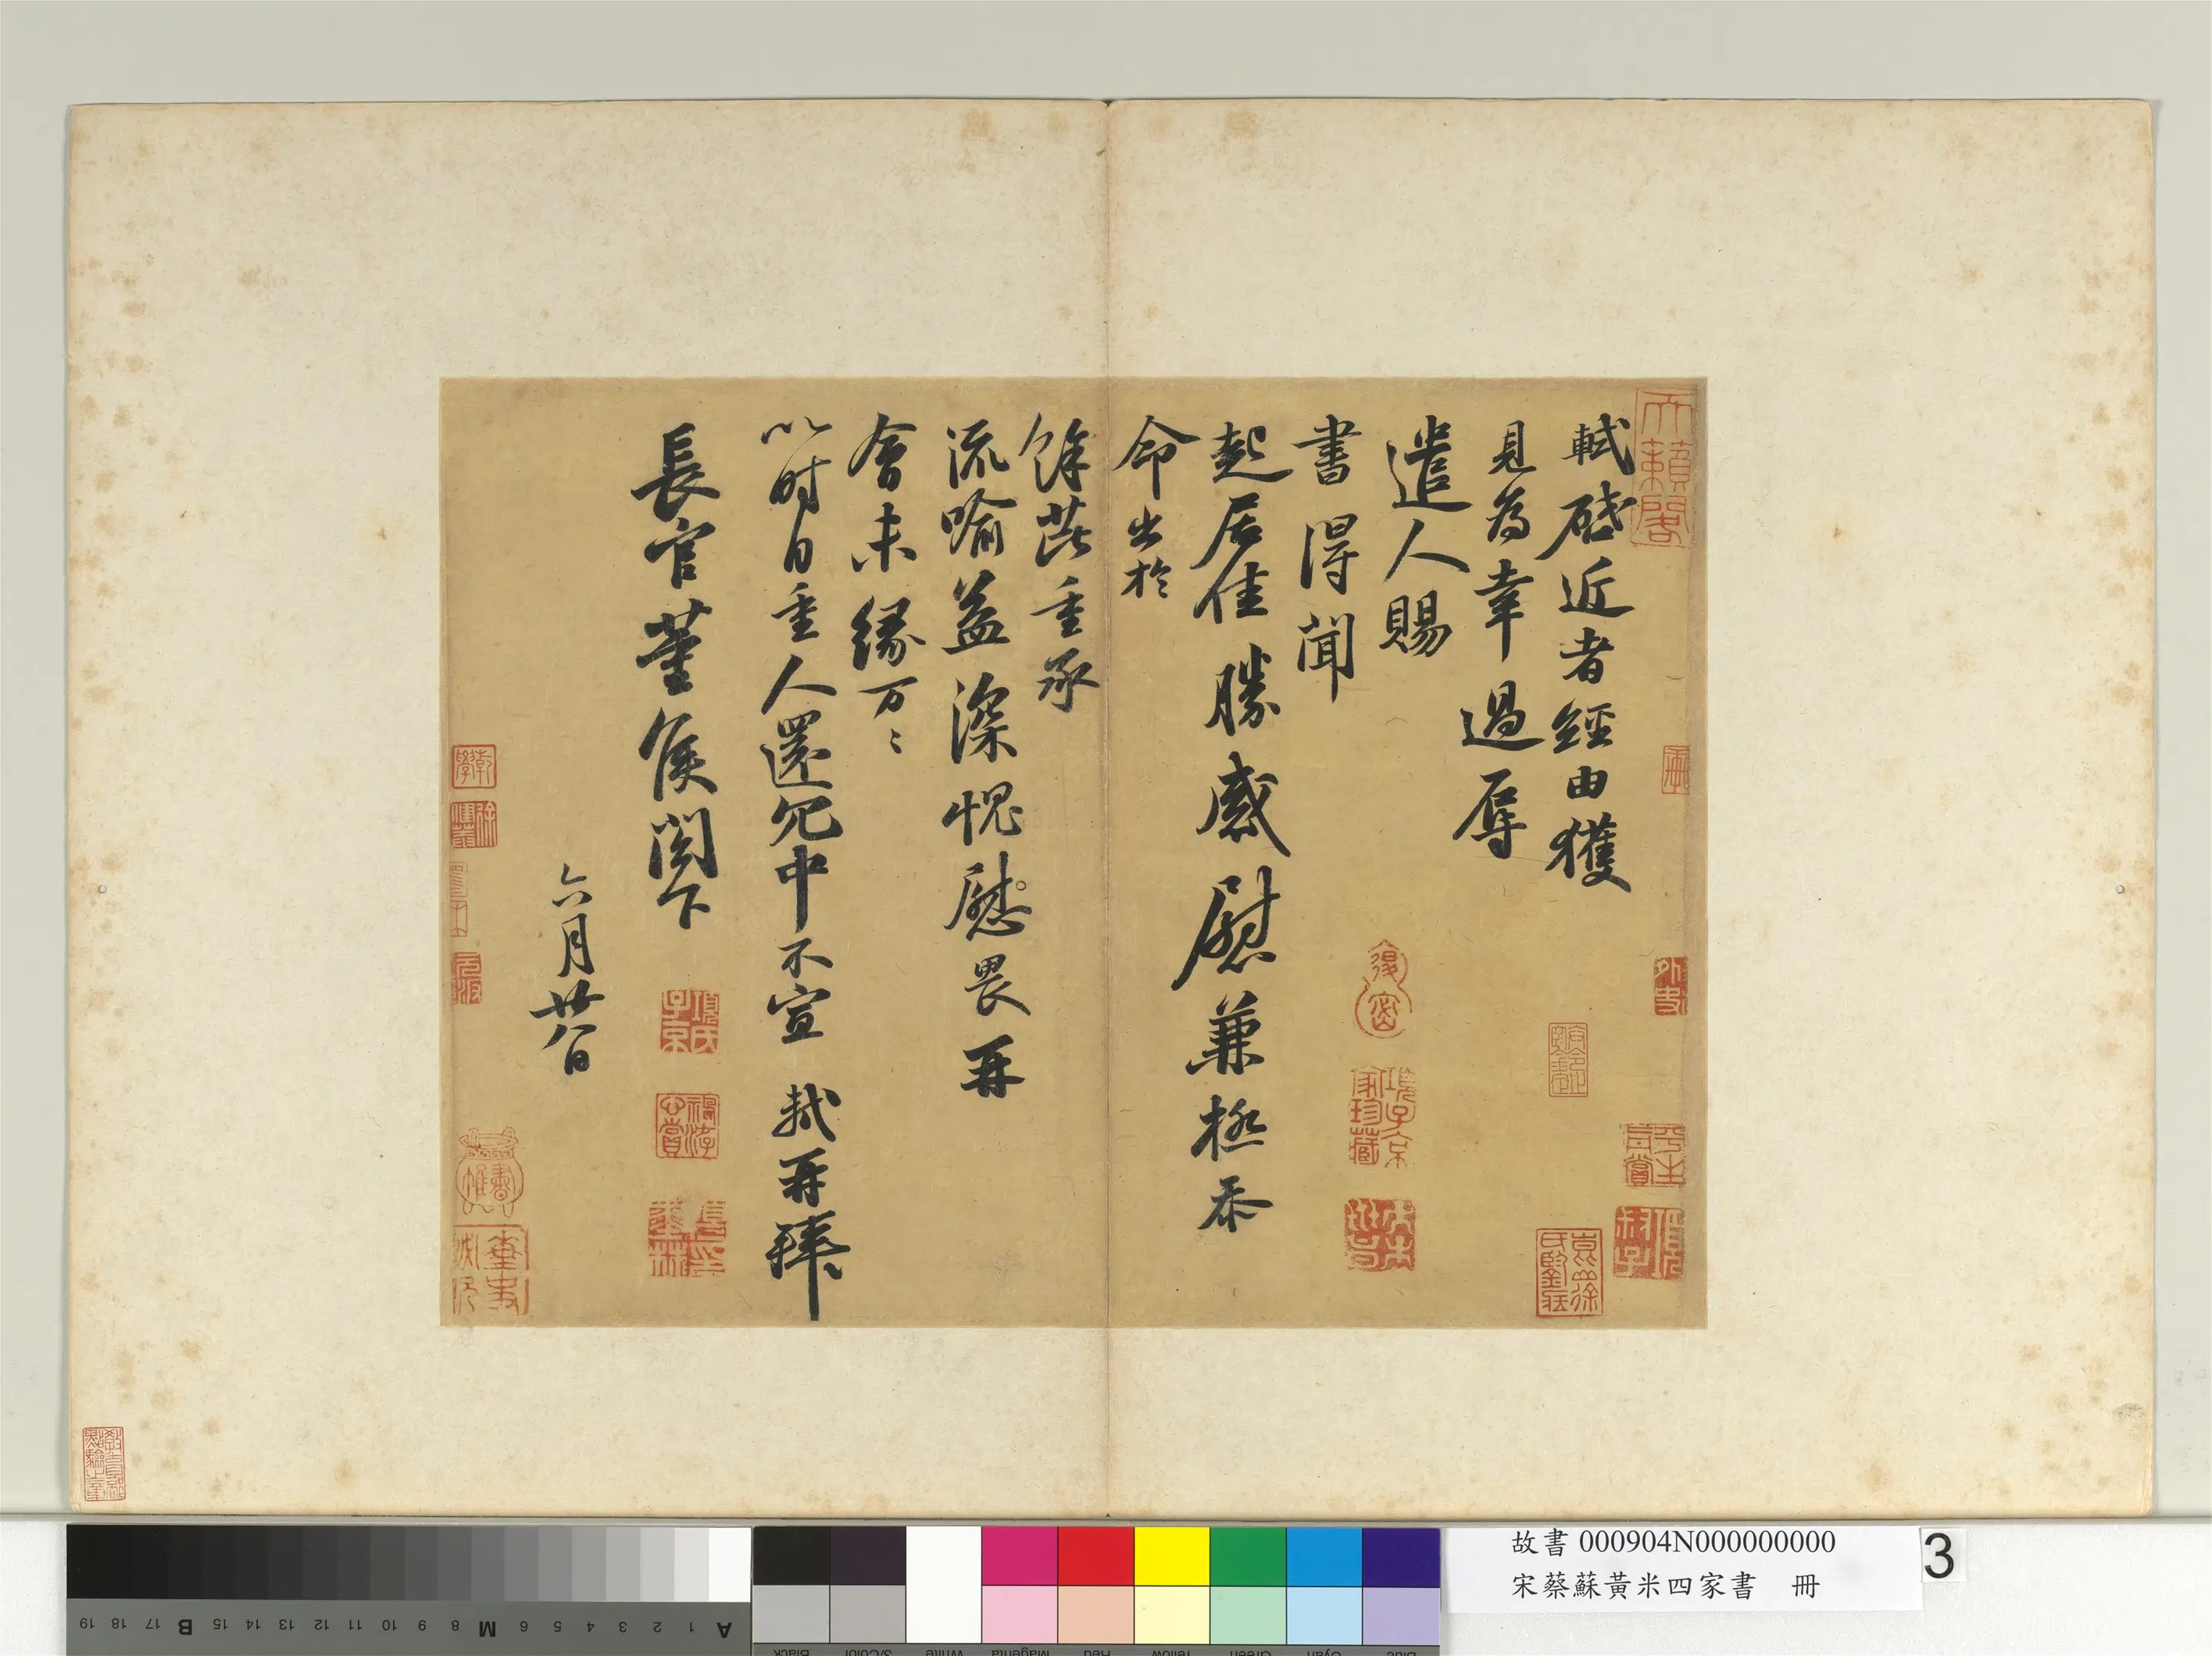 軾啓近者經由獲
見為幸過辱
遣人賜
書得聞
起居佳勝感慰兼極忝
命出於
餘芘重承
流喻益深愧慰畏再
會未緣万〻
以时自重人還冗中不宣 軾再拜
長官董侯閣下
六月廿八日
天籟閣
項氏子京
項子京家珍藏
故書 000904N000000000
宋蔡蘇黃米四家書 冊
3
A 1 2 3 4 5 6 M 8 9 10 11 12 13 14 15 B 17 18 19
Black 3/Color White Magenta Red Yellow Green Cyan Blue